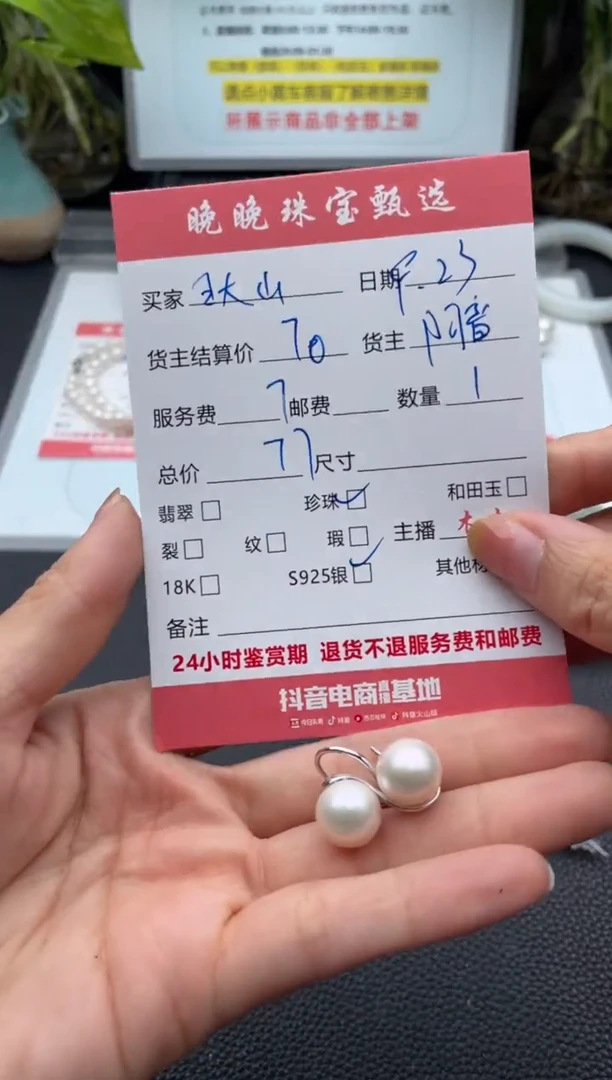 请点小黄车客服了解寄售详情
所展示商品非全部上架
晚晚珠宝甄选
买家 日期 .23
货主结算价 70 货主 阿音
服务费 7 邮费 数量 1
总价 77 尺寸
翡翠 珍珠 和田玉
裂 纹 瑕 主播
18K S925银 其他材
备注
24小时鉴赏期 退货不退服务费和邮费
抖音电商直播基地
今日头条 抖音 西瓜视频 抖音火山版